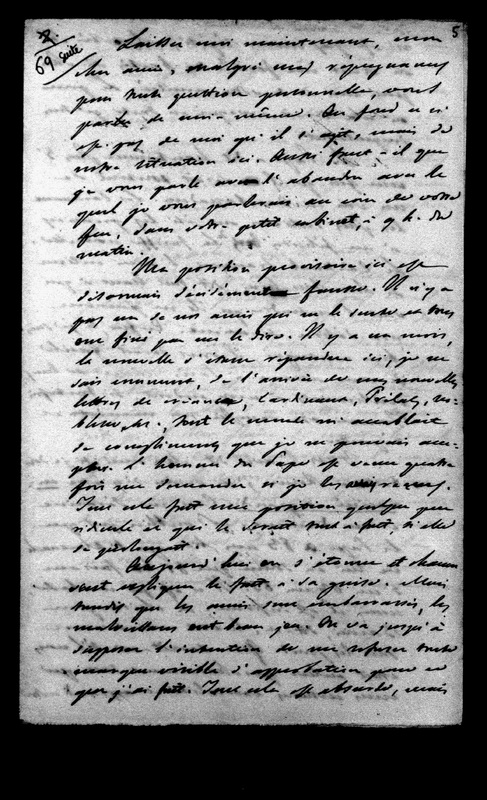 2
69 suite
5
Laissez moi maintenant, mon
cher ami, malgré mes répugnances
pour toute question personnelle, vous
parler de moi-même. Au fond ce n'
est pas de moi qu'il s'agit, mais de
notre situation ici. Aussi faut-il que
je vous parle avec l'abandon avec le
quel je vous parlerais au coin de votre
feu, dans votre petit cabinet, à 9 h. du
matin.
Ma position provisoire ici est
désormais décidément fausse. Il n'y a
pas un de nos amis qui ne le sente et tous
ont fini par me le dire. Il y a un mois,
la nouvelle s'étant répandue ici, je ne
sais comment, de l'arrivée de mes nouvelles
lettres de créance, Cardinaux, Prélats, no-
blesse, etc., tout le monde m'accablait
de compliments que je ne pouvais acce-
pter. L'homme du Pape est venu quatre
fois me demander si je les avais reçues.
Tout cela fait une position quelque peu
ridicule et qui le serait tout à fait, si elle
se prolongeait.
Aujourd'hui on s'étonne et chacun
veut expliquer le fait à sa guise. Mais
tandis que les amis sont embarrassés, les
malveillans ont beau jeu. On va jusqu'à
supposer l'intention de me refuser toute
marque visible d'approbation pour ce
que j'ai fait. Tout cela est absurde, mais